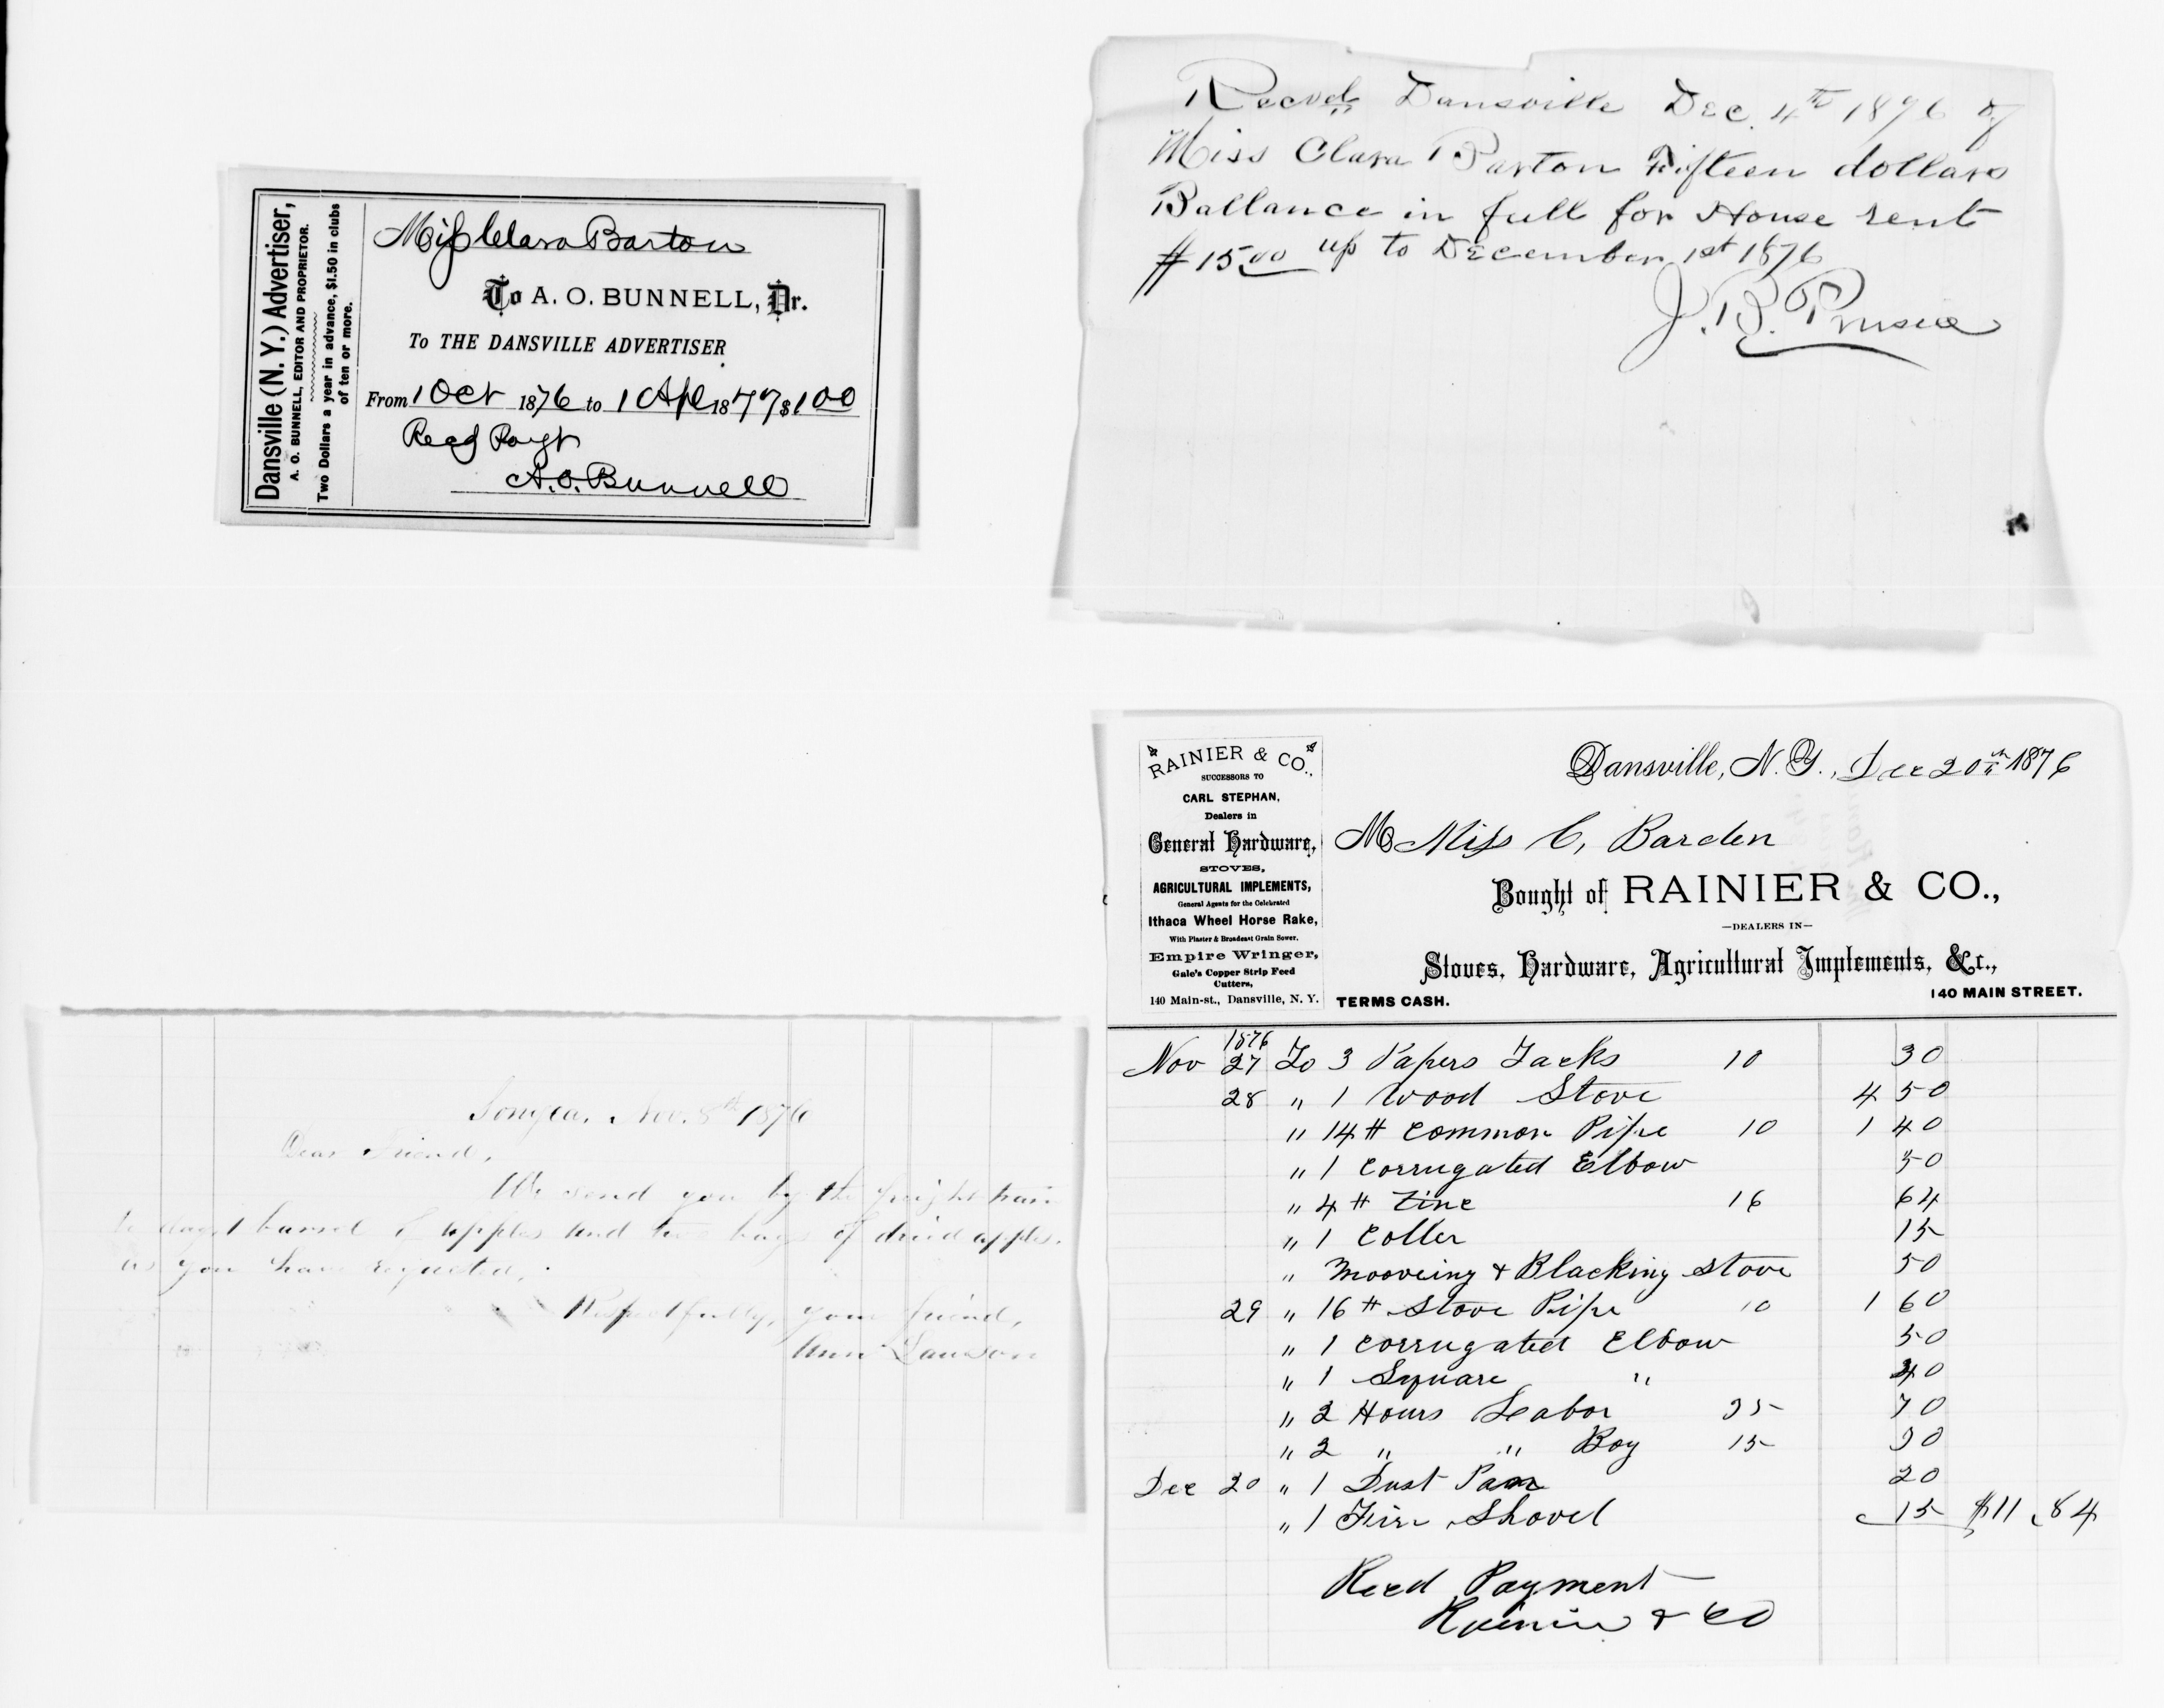 Dansville (N. Y.) Advertiser,
A. O. BUNNELL, EDITOR AND PROPRIETOR.
Two Dollars a year in advance, $1.50 in clubs
of ten or more.
Miss Clara Barton
To A. O. BUNNELL, Dr.
To THE DANSVILLE ADVERTISER
From 1 Oct 1876 to 1 Apl 1877 $1 00
Recd Payt
A. O. Bunnell
Recvd Dansville Dec. 4th 1876 of
Miss Clara Barton Fifteen dollars
Ballance in full for House rent
$15.00 up to December 1st 1876
J. B. Prusia
Sonyea, Nov. 8th 1876
Dear Friend,
We send you by the freight train
to day 1 barrel of apples and two bags of dried apples.
as you have requested.
Respectfully, your friend,
Ann Lawson
RAINIER & CO.,
SUCCESSORS TO
CARL STEPHAN,
Dealers in
General Hardware,
STOVES,
AGRICULTURAL IMPLEMENTS,
General Agents for the Celebrated
Ithaca Wheel Horse Rake,
With Plaster & Broadcast Grain Sower.
Empire Wringer,
Gale's Copper Strip Feed
Cutters,
140 Main-st., Dansville, N. Y.
Dansville, N. Y., Dec 20th 1876
M Miss C, Barden
Bought of RAINIER & CO.,
—DEALERS IN—
Stoves, Hardware, Agricultural Implements, &c.,
TERMS CASH. 140 MAIN STREET.
1876
Nov 27 To 3 Papers Tacks 10 30
28 " 1 Wood Stove 4 50
" 14 # Common Pipe 10 1 40
" 1 Corrugated Elbow 50
" 4 # Zinc 16 64
" 1 Coller 15
" Mooveing & Blacking Stove 50
29 " 16 # Stove Pipe 10 1 60
" 1 Corrugated Elbow 50
" 1 Square " 40
" 2 Hours Leabor 35 70
" 2 " " Boy 15 30
Dec 20 " 1 Dust Pan 20
" 1 Fire Shovel 15 $11.84
Recd Payment
Rainier & Co